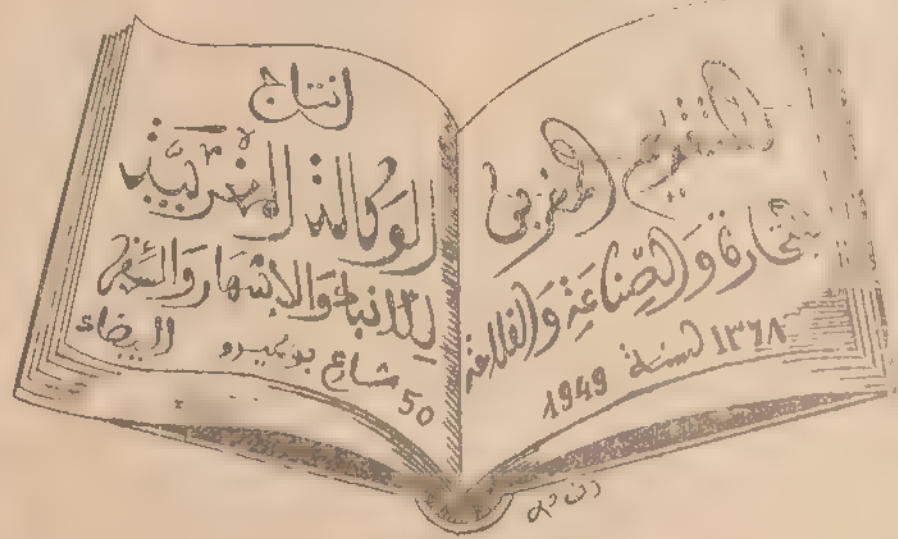 التقويم المغربي
للتجارة والصناعة والفلاحة
لسنة ١٣٦٨ 1949
انتاج
الوكالة المغربية
للانباء والاشهار والنشر
50 شارع بوميرو
البيضاء